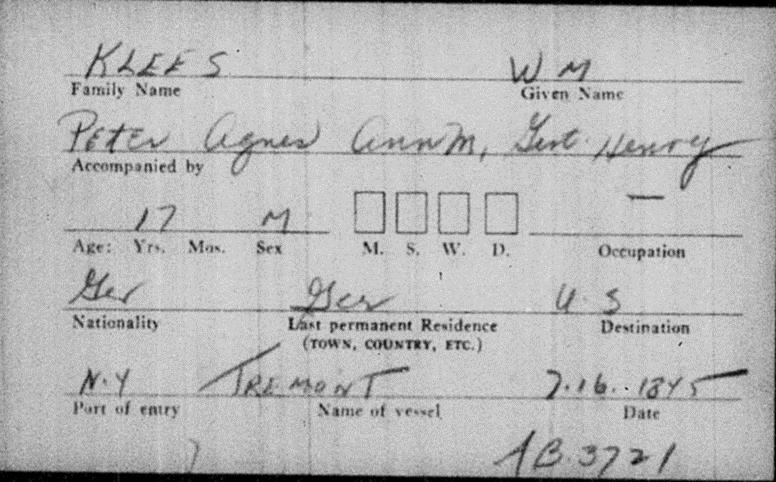 KLEES WM
Family Name Given Name
Peter Agnes Ann M, Gert Henry
Accompanied by
17 M —
Age: Yrs. Mos. Sex M. S. W. D. Occupation
Ger Ger U.S
Nationality Last permanent Residence Destination
(TOWN, COUNTRY, ETC.)
N.Y TREMONT 7.16..1845
Port of entry Name of vessel Date
AB.3721